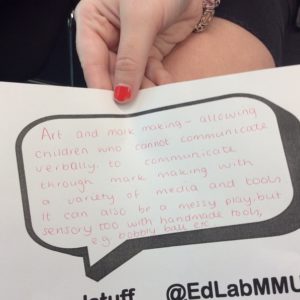 Art and mark making - allowing
children who cannot communicate
verbally. to communicate
through mark making with
a variety of media and tools
It can also be a messy play, but
sensory too with handmade tools,
e.g bobbly ball etc
stuff @EdLabMMU